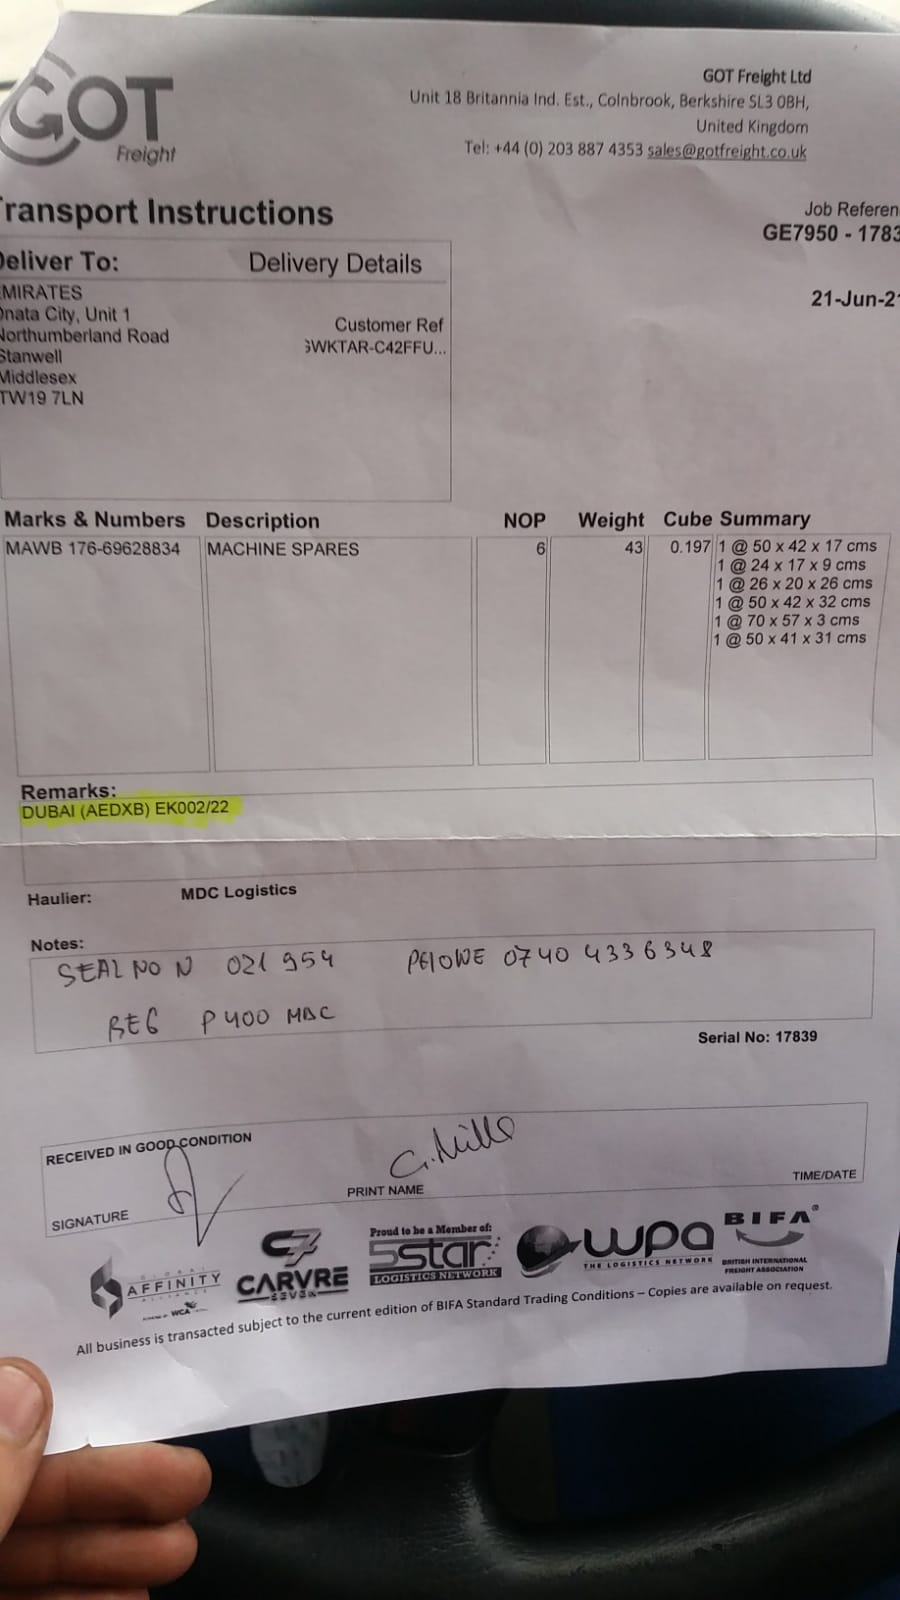 GOT
Freight
GOT Freight Ltd
Unit 18 Britannia Ind. Est., Colnbrook, Berkshire SL3 0BH,
United Kingdom
Tel: +44 (0) 203 887 4353 sales@gotfreight.co.uk
Transport Instructions
Job Referen
GE7950 - 1783
21-Jun-21
Deliver To:
Delivery Details
EMIRATES
Dnata City, Unit 1
Northumberland Road
Stanwell
Middlesex
TW19 7LN
Customer Ref
GWKTAR-C42FFU...
Marks & Numbers Description NOP Weight Cube Summary
MAWB 176-69628834 MACHINE SPARES 6 43 0.197 1 @ 50 x 42 x 17 cms
1 @ 24 x 17 x 9 cms
1 @ 26 x 20 x 26 cms
1 @ 50 x 42 x 32 cms
1 @ 70 x 57 x 3 cms
1 @ 50 x 41 x 31 cms
Remarks:
DUBAI (AEDXB) EK002/22
Haulier: MDC Logistics
Notes:
SEAL NO N 021954 0740 4336348
REG P400 MDC
Serial No: 17839
RECEIVED IN GOOD CONDITION
SIGNATURE
PRINT NAME
TIME/DATE
GLOBAL
AFFINITY
ALLIANCE
WCA
C7
CARVRE
SEVEN
Proud to be a Member of:
5star
LOGISTICS NETWORK
wpa
THE LOGISTICS NETWORK
BIFA
BRITISH INTERNATIONAL
FREIGHT ASSOCIATION
All business is transacted subject to the current edition of BIFA Standard Trading Conditions – Copies are available on request.